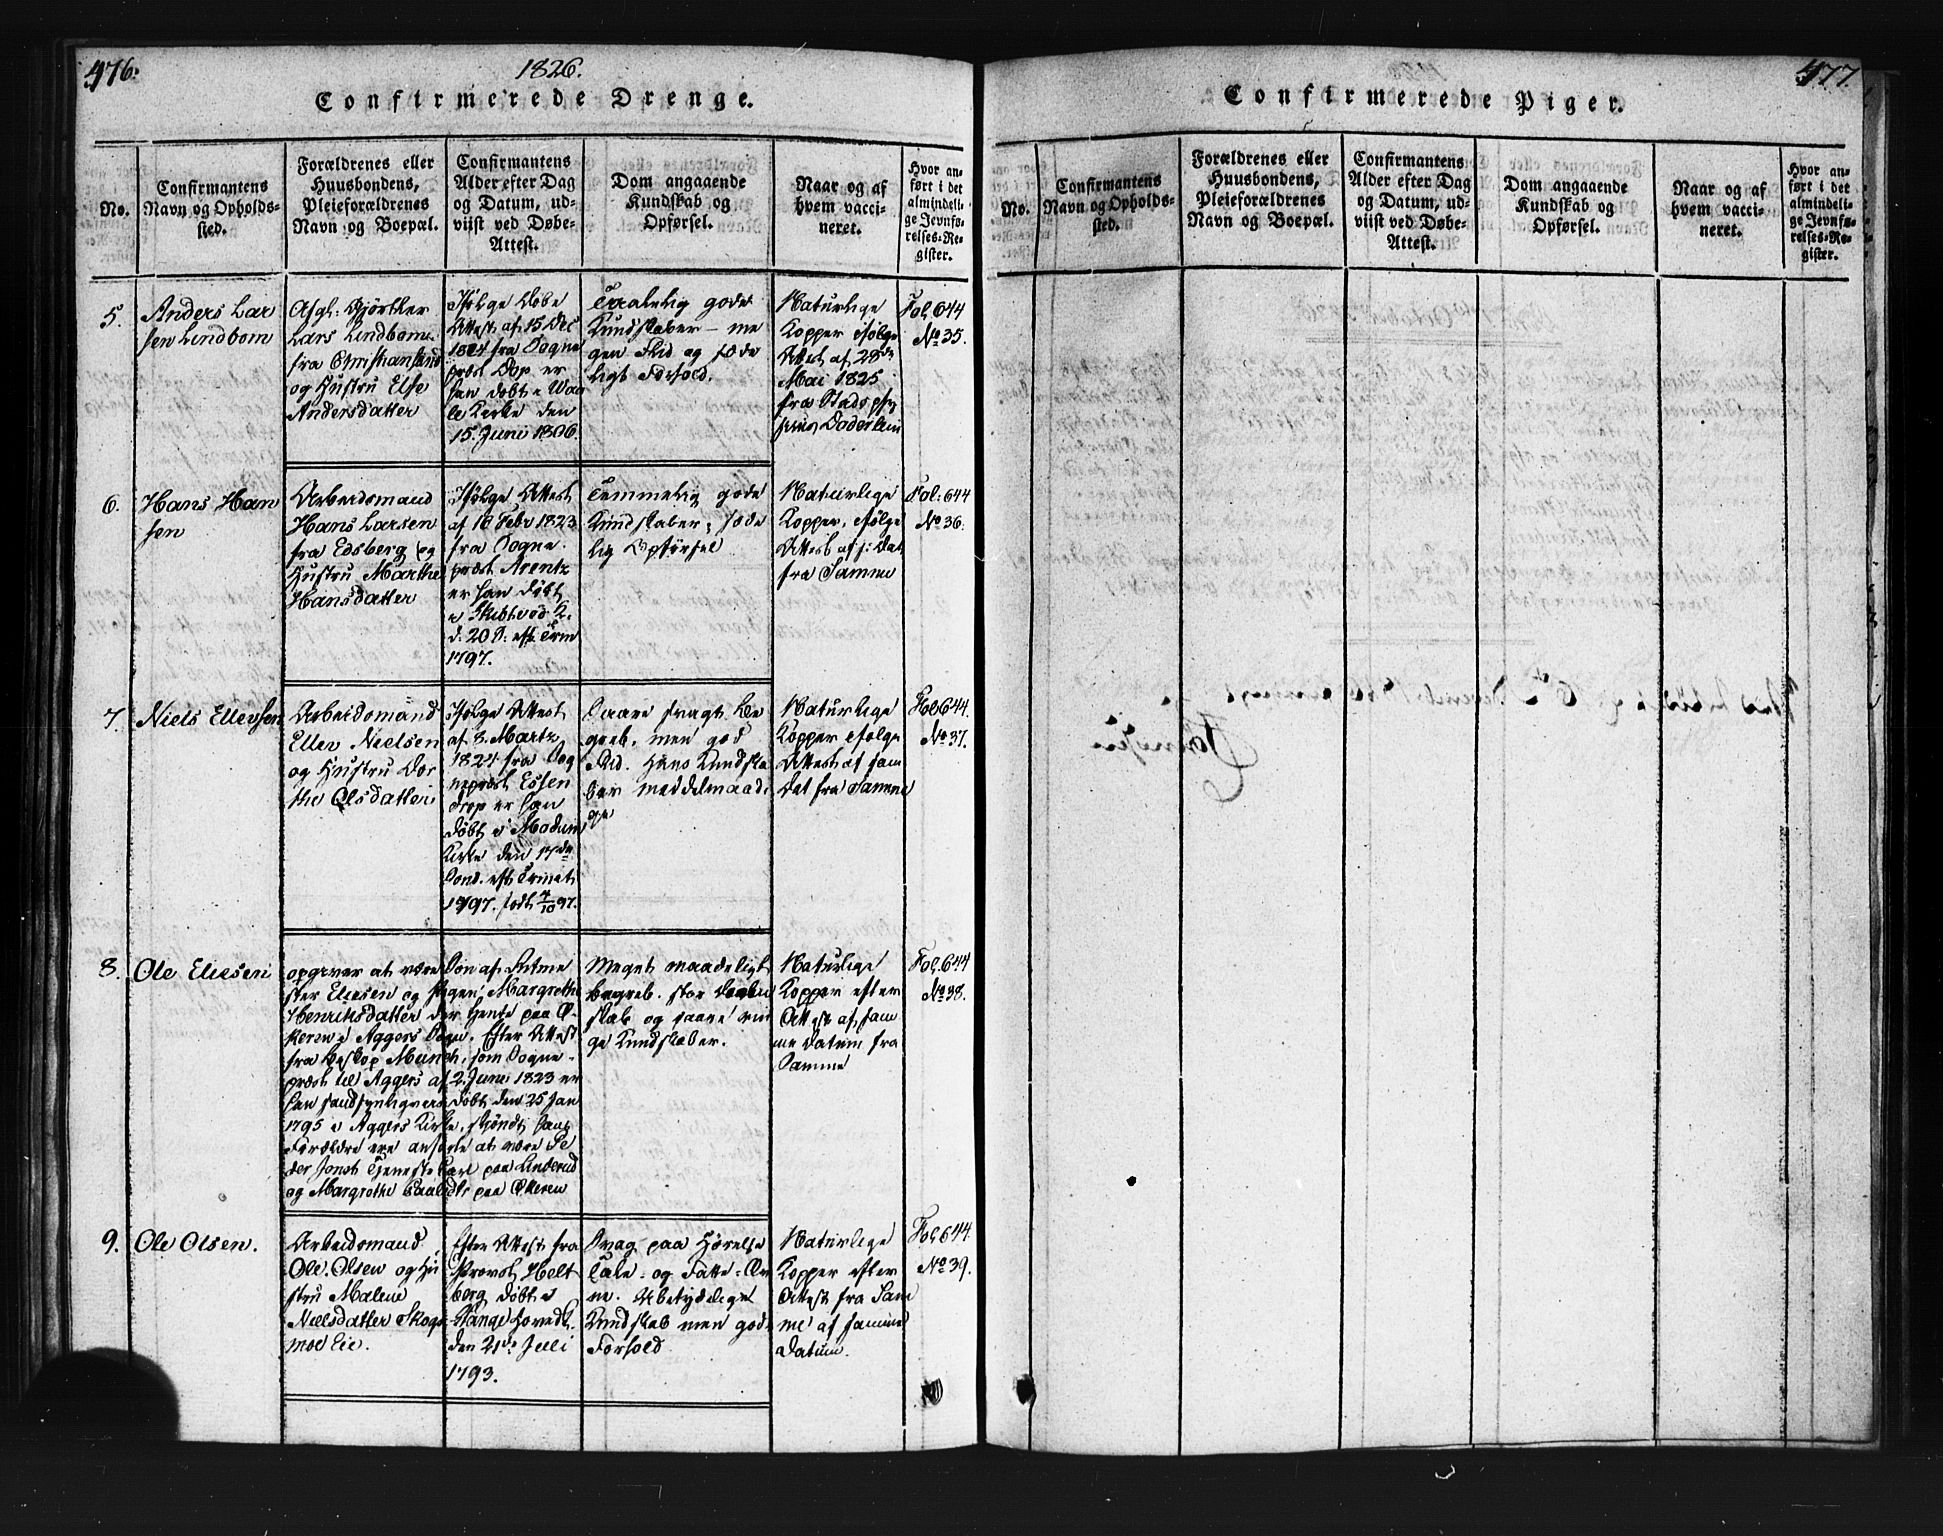 476.
1826.
Confirmerede Drenge.
No.
Confirmantens
Navn og Opholds-
sted.
Forældrenes eller
Huusbondens,
Pleieforældrenes
Navn og Boepæl.
Confirmantens
Alder efter Dag
og Datum, ud-
viist ved Døbe-
Attest.
Dom angaaende
Kundskab og
Opførsel.
Naar og af
hvem vacci-
neret.
Hvor an-
ført i det
almindeli-
ge Jevnfø-
relses-Re-
gister.
5.
Anders Lar
sen Lindbom
Afgl:
Lars Lindbom
fra Christiansund
og Hustru Else
Andersdatter
Ifølge Døbe
Attest af 15 Dec
1824 fra Sogne
præst Dop er
han døbt i
le Kirke den
15. Juni 1806.
Taalelig gode
Kundskaber - me
gen Flid og sæde
ligt Forhold.
Naturlige
Kopper ifølge
Attest af 28de
Mai 1825
fra Stadsphy
sicus Døderlein
Fol. 644
No 35.
6.
Hans Han
sen
Arbeidsmand
Hans Larsen
fra Edsberg og
Hustru Marthe
Hansdatter
Ifølge Attest
af 16 Febr 1823
fra Sogne
præst Arentz
er han døbt
i Skibtved K.
d. 20 S. eft Trin
1797.
Temmelig gode
Kundskaber, sæde
lig Opførsel
Naturlige
Kopper, ifølge
Attest af s: Dat
fra Samme
Fol: 644
No 36.
7.
Niels Ellevsen
Arbeidsmand
Ellev Nielsen
og Hustru Dor
the Olsdatter
Ifølge Attest
af 8. Martz
1824 fra Sog
nepræst Essen
drop er han
døbt i Modum
Kirke den 17de
Sond. eft Trinit:
1797. født 4/10 97.
Saare svagt Be
greb, men god
Flid. Hans Kundska
ber middelmaadi
ge
Naturlige
Kopper ifølge
Attest af sam
Dat fra Samme
Fol 644.
No 37.
8.
Ole Eliesen
opgiver at være Søn af
ster Eliesen og Pigen Margrethe
Henriksdatter der tiente paa Ø-
keren i Aggers Sogn. Efter Attest
fra Biskop Munch, som Sogne-
præst til Aggers af 2. Juni 1823 er
han sandsynligviis døbt den 25 Jan
1795 i Aggers Kirke, skiøndt hans
Forældre ere anførte at være Pe
der Jonst Tienestekarl paa Linderud
og Margrethe Paalsdtr paa Økeren
Meget maadeligt
Begreb. stor
skab og saare rin
ge Kundskaber.
Naturlige
Kopper efter
Attest af sam
me Datum fra
Samme
Fol. 644
No 38.
9.
Ole Olsen.
Arbeidsmand
Ole Olsen og Hu
stru Malene
Nielsdatter Skogs
mod Eie.
Efter Attest fra
Provst Helt
berg døbt i
Stange Hovedk.
den 21de Juli
1793.
Svag paa Hørelse
Tale - og Fatte - Ev
ne. Ubetydelige
Kundskab men godt
Forhold
Naturlige
Kopper efter
Attest fra Sam
me af samme
Datum.
Fol 644
No 39.
477.
Confirmerede Piger.
No.
Confirmantens
Navn og Opholds-
sted.
Forældrenes eller
Huusbondens,
Pleieforældrenes
Navn og Boepæl.
Confirmantens
Alder efter Dag
og Datum, ud-
viist ved Døbe-
Attest.
Dom angaaende
Kundskab og
Opførsel.
Naar og af
hvem vacci-
neret.
Hvor an-
ført i det
almindeli-
ge Jevnfø-
relses-Re-
gister.